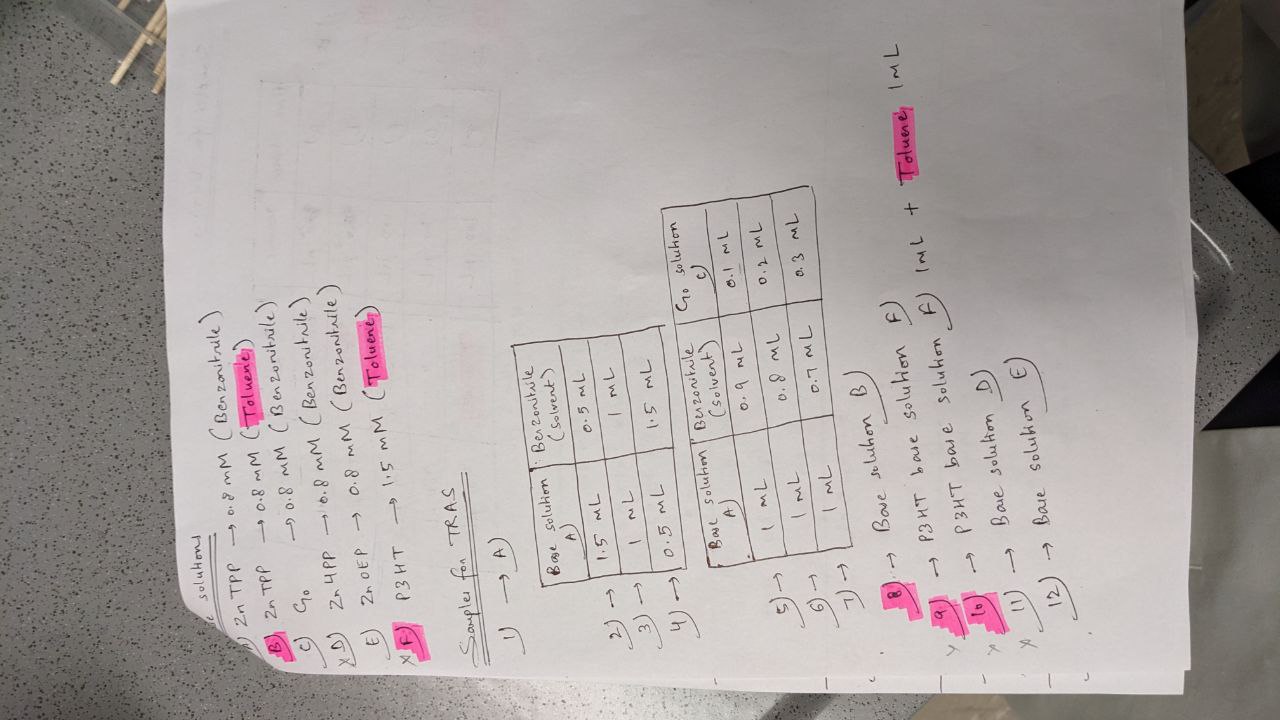 solutions
A) ZnTPP → 0.8 mM (Benzonitrile)
B) ZnTPP → 0.8 mM (Toluene)
C) C60 → 0.8 mM (Benzonitrile)
x D) Zn4PP → 0.8 mM (Benzonitrile)
E) ZnOEP → 0.8 mM (Benzonitrile)
x F) P3HT → 1.5 mM (Toluene)
Samples for TRAS
1) → A)
Base solution A) Benzonitrile (solvent)
2) → 1.5 mL 0.5 mL
3) → 1 mL 1 mL
4) → 0.5 mL 1.5 mL
Base solution A) Benzonitrile (solvent) C60 solution C)
5) → 1 mL 0.9 mL 0.1 mL
6) → 1 mL 0.8 mL 0.2 mL
7) → 1 mL 0.7 mL 0.3 mL
8) → Base solution B)
x 9) → P3HT base solution F)
x 10) → P3HT base solution F) 1mL + Toluene 1mL
x 11) → Base solution D)
12) → Base solution E)